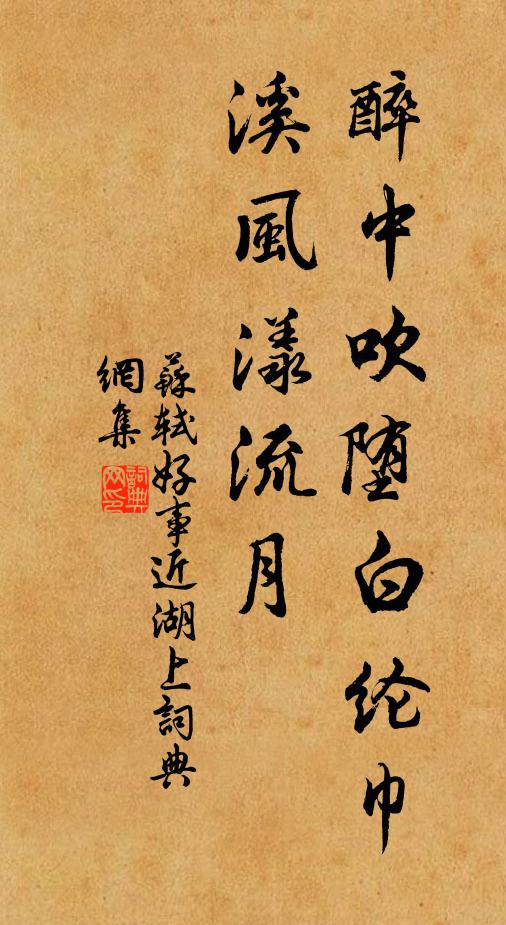 醉中吹堕白纶巾
溪風漾流月
蘇軾好事近湖上詞典
網集
詞典
网印